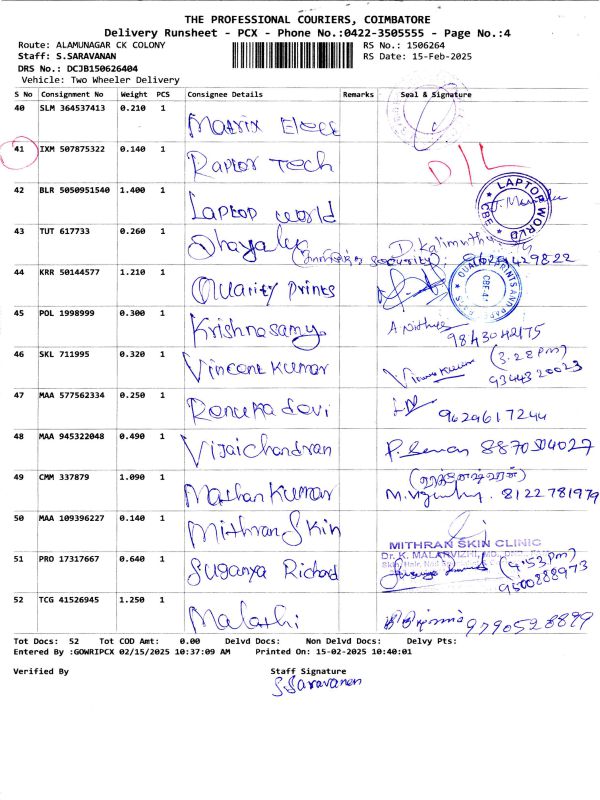 THE PROFESSIONAL COURIERS, COIMBATORE
Delivery Runsheet - PCX - Phone No.:0422-3505555 - Page No.:4
Route: ALAMUNAGAR CK COLONY
RS No.: 1506264
Staff: S.SARAVANAN
RS Date: 15-Feb-2025
DRS No.: DCJB150626404
Vehicle: Two Wheeler Delivery
S No Consignment No Weight PCS Consignee Details Remarks Seal & Signature
40 SLM 364537413 0.210 1 Matrix Elect
41 IXM 507875322 0.140 1 Raptor Tech D/L
42 BLR 5050951540 1.400 1 Laptop world
LAPTOP WORLD CBE
43 TUT 617733 0.260 1 Dhayalan D. Kalimuthu 9629429822
44 KRR 50144577 1.210 1 Quarity Prints
45 POL 1998999 0.300 1 Krishnasamy A Nithya 9843042175
46 SKL 711995 0.320 1 Vincent Kumar (3.28 pm)
9344320023
47 MAA 577562334 0.250 1 Renuka devi 9629617244
48 MAA 945322048 0.490 1 Vijaichandran 8870504027
49 CMM 337879 1.090 1 Mathan Kumar 8122781979
50 MAA 109396227 0.140 1 Mithran Skin
MITHRAN SKIN CLINIC
Dr. K. MALARVIZHI, MD.,
51 PRO 17317667 0.640 1 Suganya Richard (4:53 pm)
9500888973
52 TCG 41526945 1.250 1 Malathi 9790528899
Tot Docs: 52 Tot COD Amt: 0.00 Delvd Docs: Non Delvd Docs: Delvy Pts:
Entered By :GOWRIPCX 02/15/2025 10:37:09 AM Printed On: 15-02-2025 10:40:01
Verified By Staff Signature
S.Saravanan